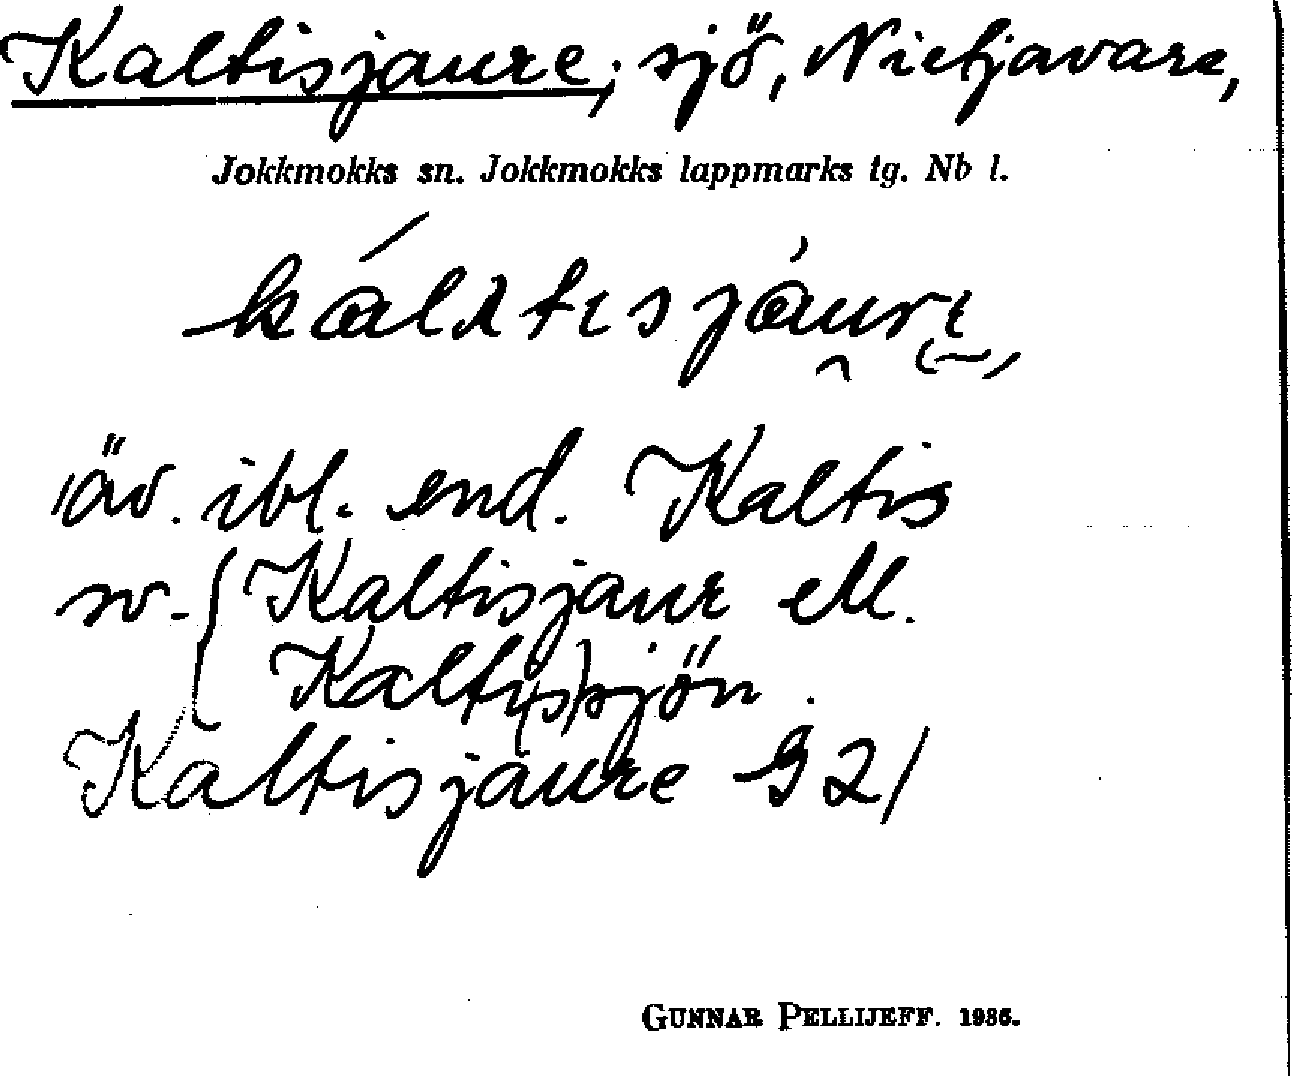 Kaltisjaure, sjö, Nietjavare,
Jokkmokks sn. Jokkmokks lappmarks tg. Nb l.
äv. ibl. end. Kaltis
sv. { Kaltisjaur ell.
Kaltis(s)jön.
Kaltisjaure G 21
GUNNAR PELLIJEFF. 1986.